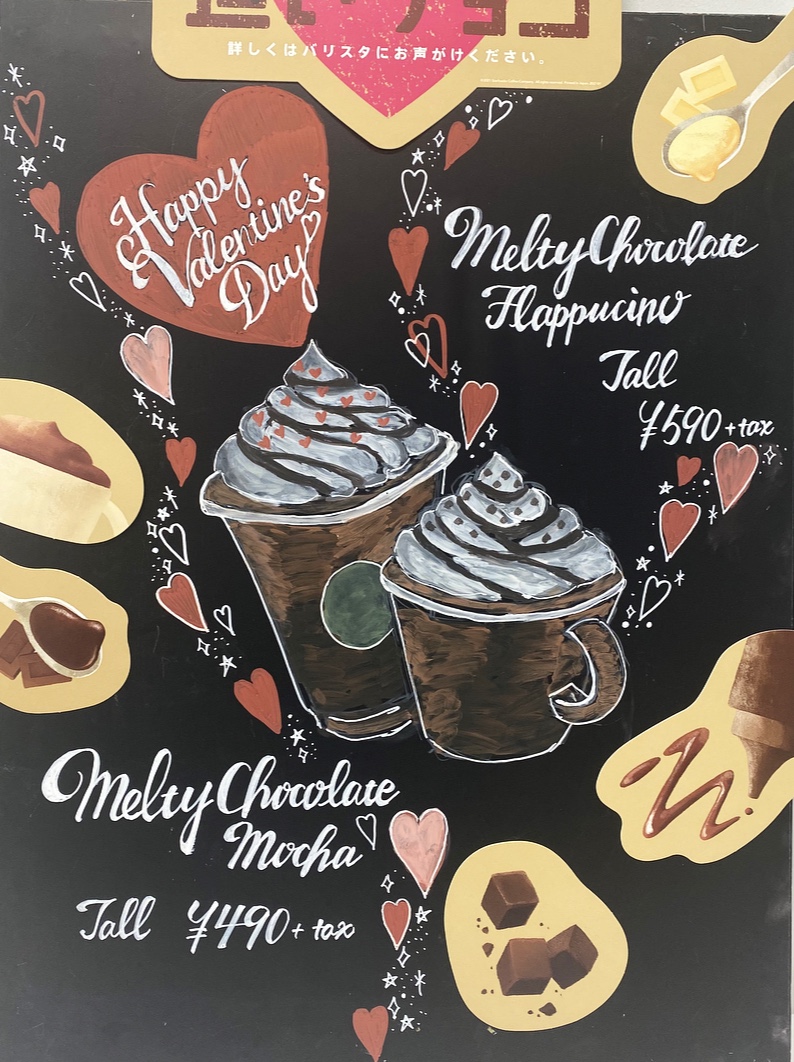 追いチョコ
詳しくはバリスタにお声がけください。
Happy
Valentine's
Day
Melty Chocolate
Flappucino
Tall
¥590+tax
Melty Chocolate
Mocha
Tall ¥490+tax